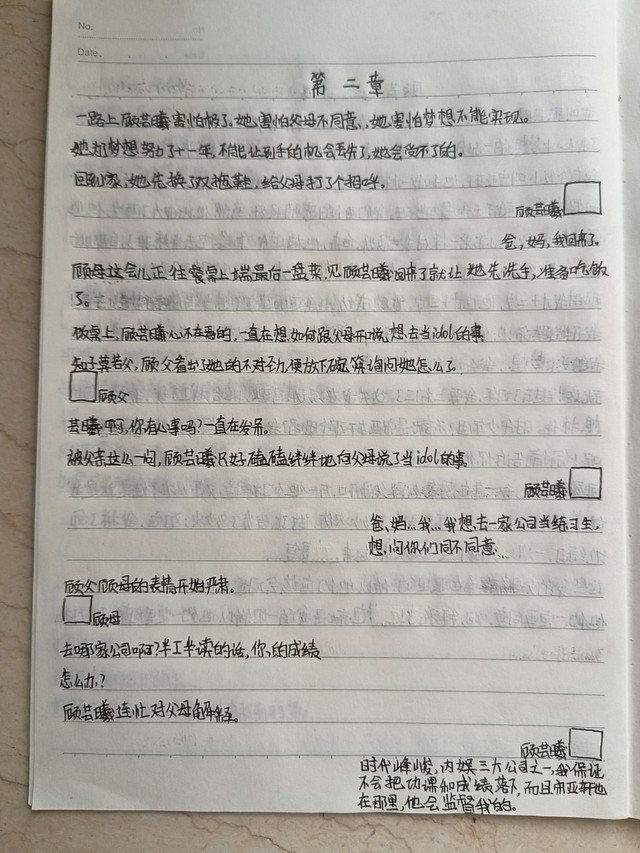 No.
Date.
第二章
一路上顾芸曦害怕极了。她害怕父母不同意,她害怕梦想不能实现。
她为梦想努力了十一年,不能让到手的机会丢失了,她会受不了的。
回到家,她先换了双拖鞋,给父母打了个招呼。
顾芸曦
爸,妈,我回来了。
顾母这会儿正往餐桌上端最后一盘菜,见顾芸曦回来了就让她先洗手,准备吃饭
了。
饭桌上,顾芸曦心不在焉的,一直在想如何跟父母开口说,想去当idol的事
知子莫若父,顾父看出了她的不对劲,便放下碗筷询问她怎么了。
顾父
芸曦啊,你有心事吗?一直在发呆。
被父亲这么一问,顾芸曦只好磕磕绊绊地向父母说了当idol的事
顾芸曦
爸、妈...我...我想去一家公司当练习生,
想问你们同不同意...
顾父顾母的表情开始严肃。
顾母
去哪家公司啊?半工半读的话,你的成绩
怎么办?
顾芸曦连忙对父母解释。
顾芸曦
时代峰峻,内娱三大公司之一,我保证
不会把功课和成绩落下,而且宋亚轩也
在那里,他会监督我的。